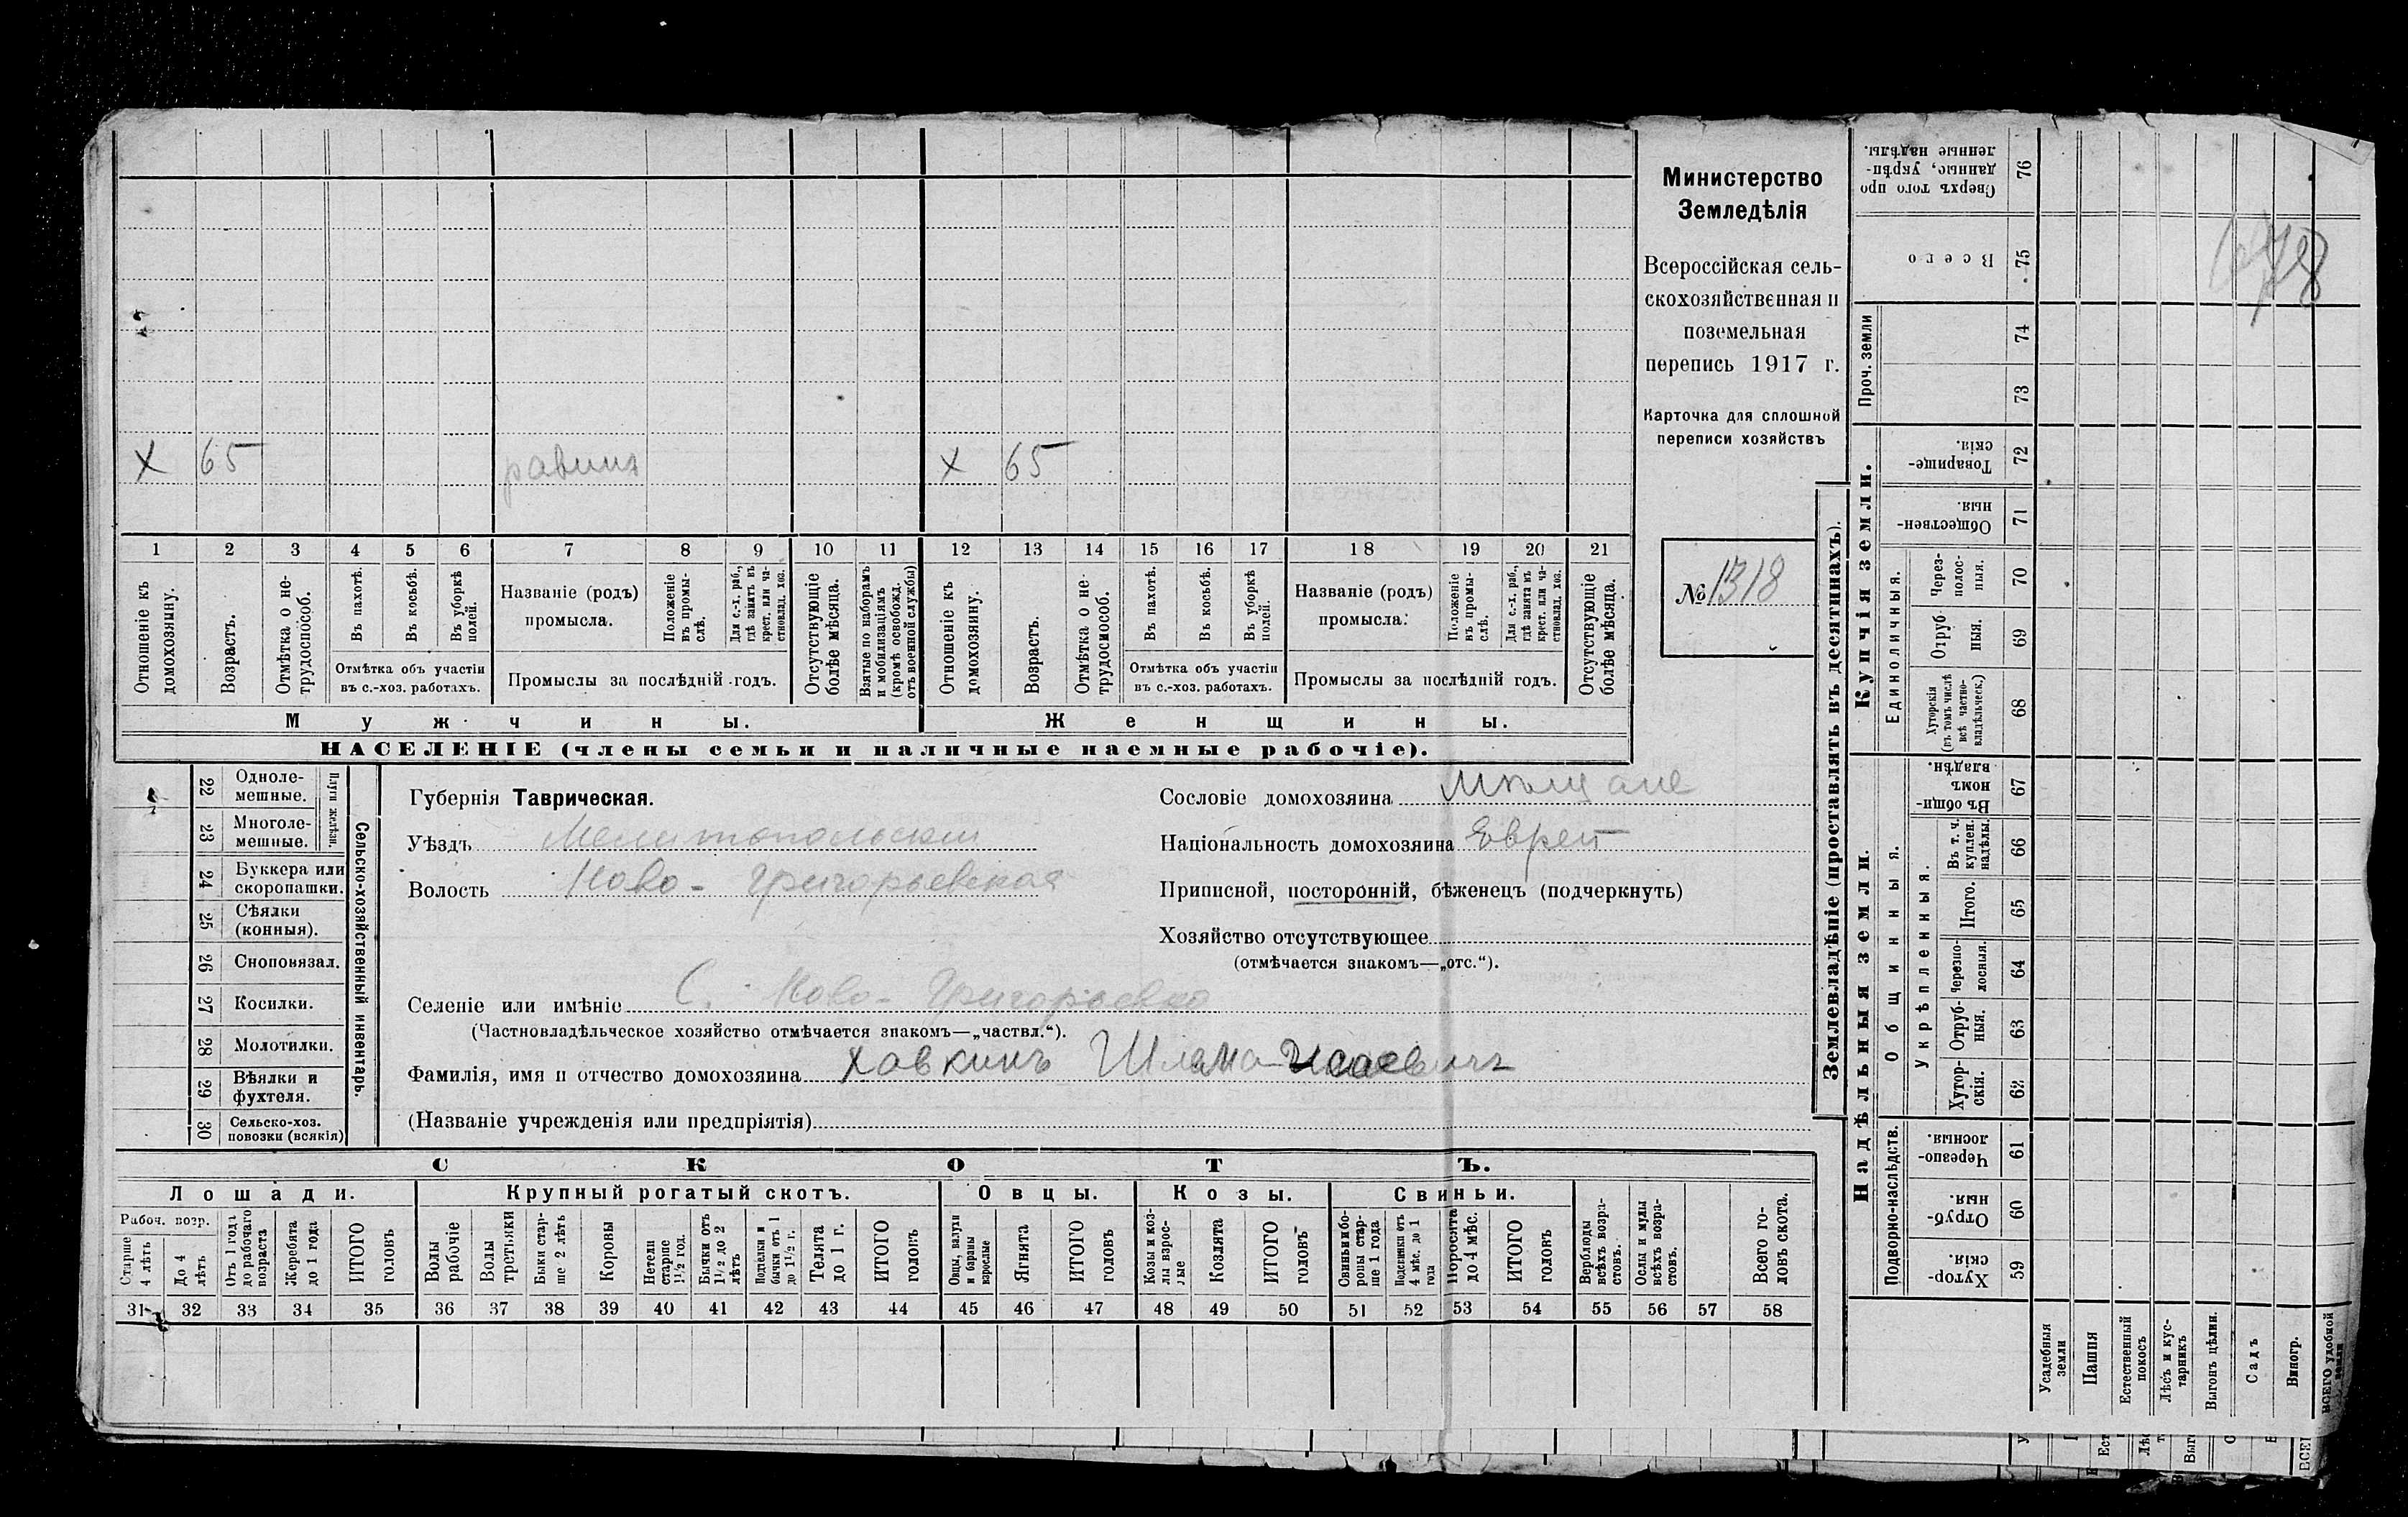 Министерство
Земледѣлія
Всероссійская сель-
скохозяйственная и
поземельная
перепись 1917 г.
Карточка для сплошной
переписи хозяйствъ
№ 1318
Х 65 равинъ Х 65
1 2 3 4 5 6 7 8 9 10 11 12 13 14 15 16 17 18 19 20 21
Отношеніе къ домохозяину.
Возрастъ.
Отмѣтка о не-трудоспособ.
Въ пахотѣ.
Въ косьбѣ.
Въ уборкѣ полей.
Отмѣтка объ участіи въ с.-хоз. работахъ.
Названіе (родъ) промысла.
Положеніе въ промы-слѣ.
Для с.-х. раб., гдѣ занятъ въ крест. или ча-стновлад. хоз.
Промыслы за послѣдній годъ.
Отсутствующіе болѣе мѣсяца.
Взятые по наборамъ и мобилизаціямъ (кромѣ освобожд. отъ военной службы)
Отношеніе къ домохозяину.
Возрастъ.
Отмѣтка о не-трудоспособ.
Въ пахотѣ.
Въ косьбѣ.
Въ уборкѣ полей.
Отмѣтка объ участіи въ с.-хоз. работахъ.
Названіе (родъ) промысла.
Положеніе въ промы-слѣ.
Для с.-х. раб., гдѣ занята въ крест. или ча-стновлад. хоз.
Промыслы за послѣдній годъ.
Отсутствующіе болѣе мѣсяца.
Мужчины. Женщины.
НАСЕЛЕНІЕ (члены семьи и наличные наемные рабочіе).
22 Одноле-мешные.
23 Многоле-мешные.
Плуги желѣзн.
24 Буккера или скоропашки.
25 Сѣялки (конныя).
26 Сноповязал.
27 Косилки.
28 Молотилки.
29 Вѣялки и фухтеля.
30 Сельско-хоз. повозки (всякія)
Сельско-хозяйственный инвентарь.
Губернія Таврическая.
Уѣздъ Мелитопольскій
Волость Ново-Григорьевская
Селеніе или имѣніе С. Ново-Григорьевка
(Частновладѣльческое хозяйство отмѣчается знакомъ—„частвл.“).
Фамилія, имя и отчество домохозяина Хавкинъ Шлема Исаевичъ
(Названіе учрежденія или предпріятія)
Сословіе домохозяина Мѣщане
Національность домохозяина Еврей
Приписной, посторонній, бѣженецъ (подчеркнуть)
Хозяйство отсутствующее
(отмѣчается знакомъ—„отс.“).
СКОТЪ.
Лошади. Крупный рогатый скотъ. Овцы. Козы. Свиньи.
Рабоч. возр.
Старше 4 лѣтъ
До 4 лѣтъ
Отъ 1 года до рабочаго возраста
Жеребята до 1 года
ИТОГО головъ
Волы рабочіе
Волы третьяки
Быки стар-ше 2 лѣтъ
Коровы
Нетели старше 1½ год.
Бычки отъ 1½ до 2 лѣтъ
Подтелки и бычки отъ 1 до 1½ г.
Телята до 1 г.
ИТОГО головъ
Овцы, валухи и бараны взрослые
Ягнята
ИТОГО головъ
Козы и коз-лы взрос-лые
Козлята
ИТОГО головъ
Свиньи и бо-ровы стар-ше 1 года
Подсвинки отъ 4 мѣс. до 1 года
Поросята до 4 мѣс.
ИТОГО головъ
Верблюды всѣхъ возра-стовъ.
Ослы и мулы всѣхъ возра-стовъ.
Всего го-ловъ скота.
31 32 33 34 35 36 37 38 39 40 41 42 43 44 45 46 47 48 49 50 51 52 53 54 55 56 57 58
Землевладѣніе (проставлять въ десятинахъ).
Надѣльныя земли. Купчія земли. Проч. земли
Подворно-наслѣдств.
Общинныя.
Укрѣпленныя.
Единоличныя.
Хутор-скія. 59
Отруб-ныя. 60
Черезпо-лосныя. 61
Хутор-скія. 62
Отруб-ныя. 63
Черезпо-лосныя. 64
Итого. 65
Въ т. ч. куплен. надѣлы. 66
Въ общи-номъ владѣн. 67
Хуторскія (въ томъ числѣ всѣ частно-владѣльческ.) 68
Отруб-ныя. 69
Через-полос-ныя. 70
Обществен-ныя. 71
Товарище-скія. 72
73
74
Всего 75
Сверхъ того про-данные, укрѣп-ленные надѣлы. 76
Усадебныя земли
Пашня
Естественный покосъ
Лѣсъ и кус-тарникъ
Выгонъ цѣлин.
Садъ
Виногр.
ВСЕГО удобной земли